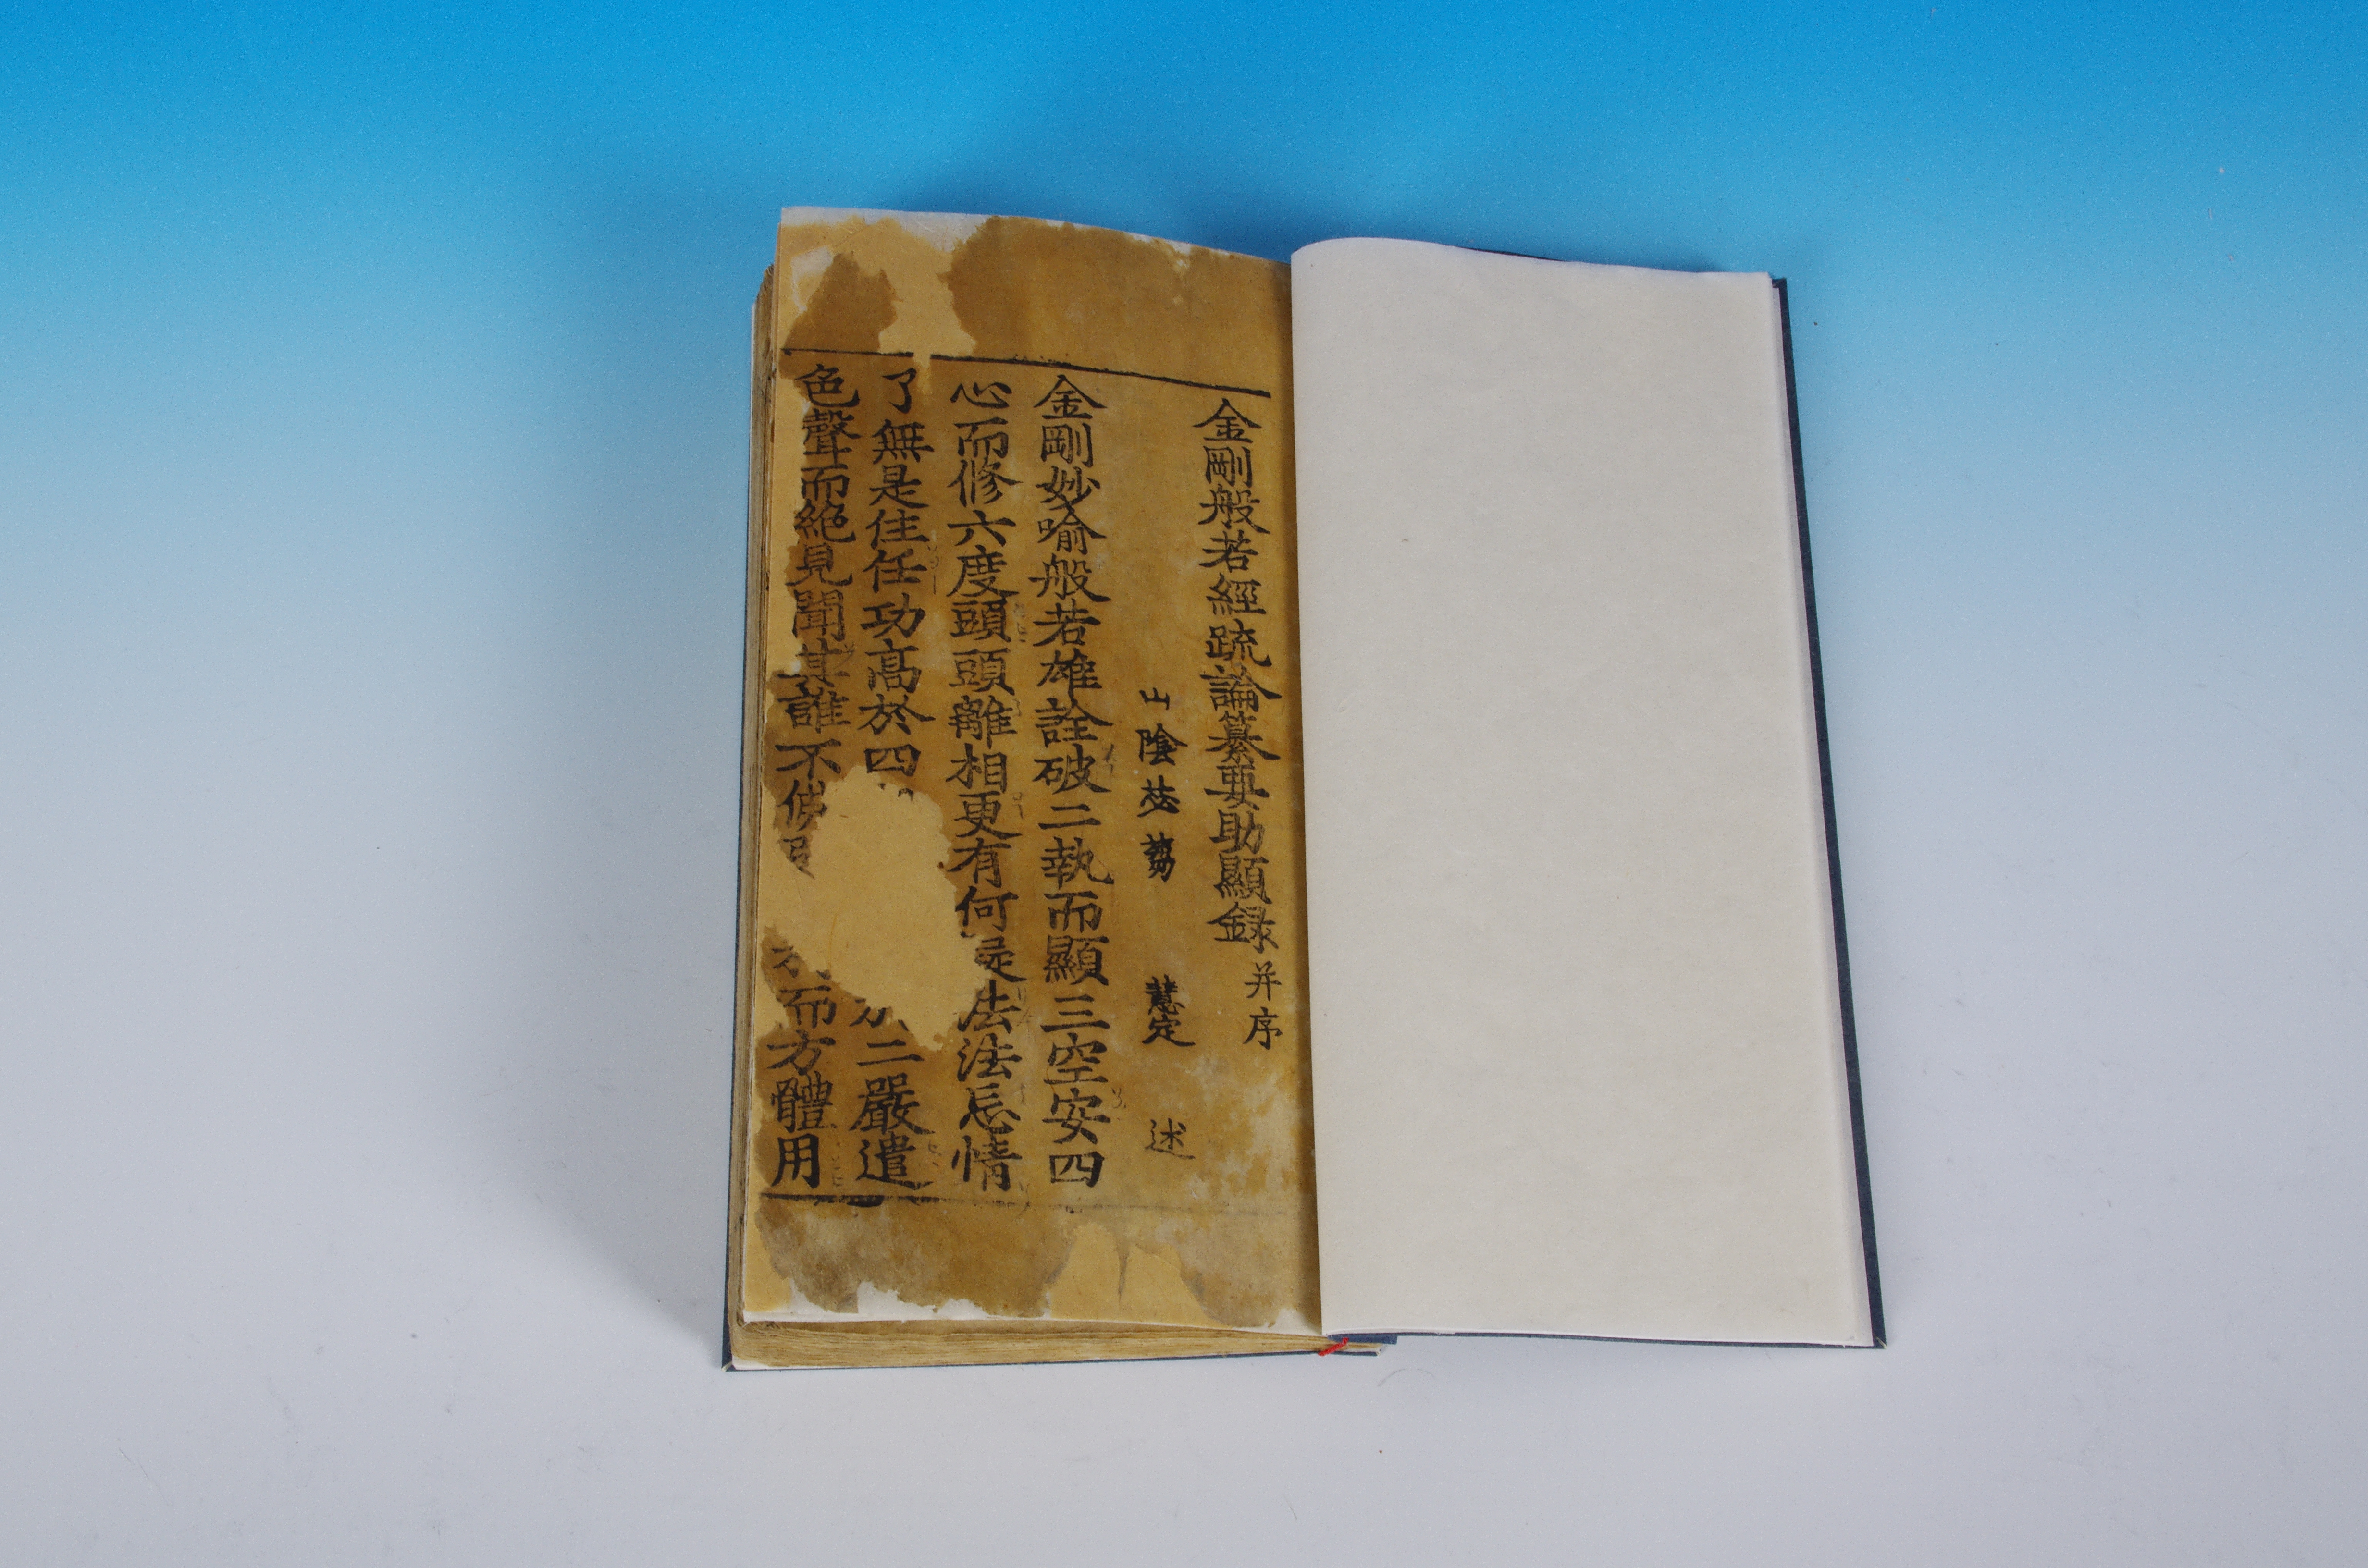 金剛般若經䟽論纂要助顯録 并序
山陰苾蒭 慧定 述
金剛妙喻般若雄詮破二執而顯三空安四
心而修六度頭頭離相更有何是法法忘情
了無是住任功高於四二嚴遣
色聲而絶見聞其誰不使而方體用